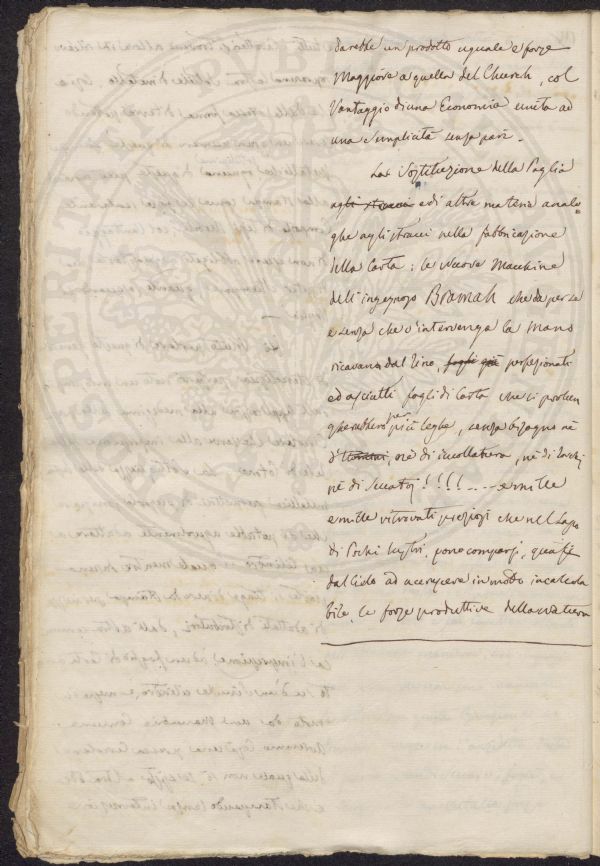 darebbe un prodotto uguale e forse
Maggiore a quello del Church, col
Vantaggio di una Economia unita ad
una Simplicità senza pari.
La Sostituzione della Paglia
agli stracci e di altre materie analo=
ghe agli stracci nella fabbricazione
della Carta: le Nuove Macchine
dell'ingegnoso Bramah che da per se
e senza che v'intervenga la mano
ricavano dal Tino, fogli già perfezionati
ed asciutti fogli di Carta che si prolun
gherebbero per più leghe, senza bisogno né
d' , né di incollatura, né di
né di Seccatoj!!!! .... e mille
e mille ritrovati preziosi che nel Lasso
di pochi lustri, sono comparsi, quasi
dal Cielo ad accrescere in modo incalcola
bile, le forze produttive della